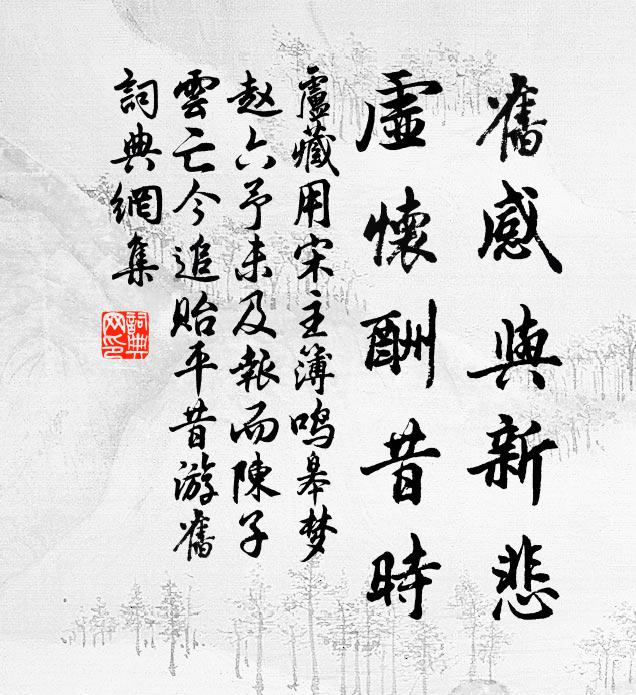 舊感與新悲
虛懷酬昔時
盧藏用宋主簿鸣皋梦
赵六予未及報而陳子
雲亡今追貽平昔游舊
詞典網集
詞典
网印